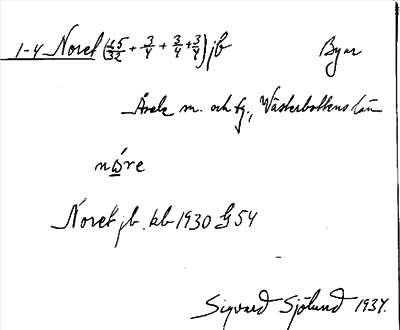 1-4 Noret (45/32 + 3/4 + 3/4 + 3/4) jb Byar
Åsele sn. och tg., Västerbottens län
nåre
Noret jb. kb 1930 G 54
Sigvard Sjölund 1937.